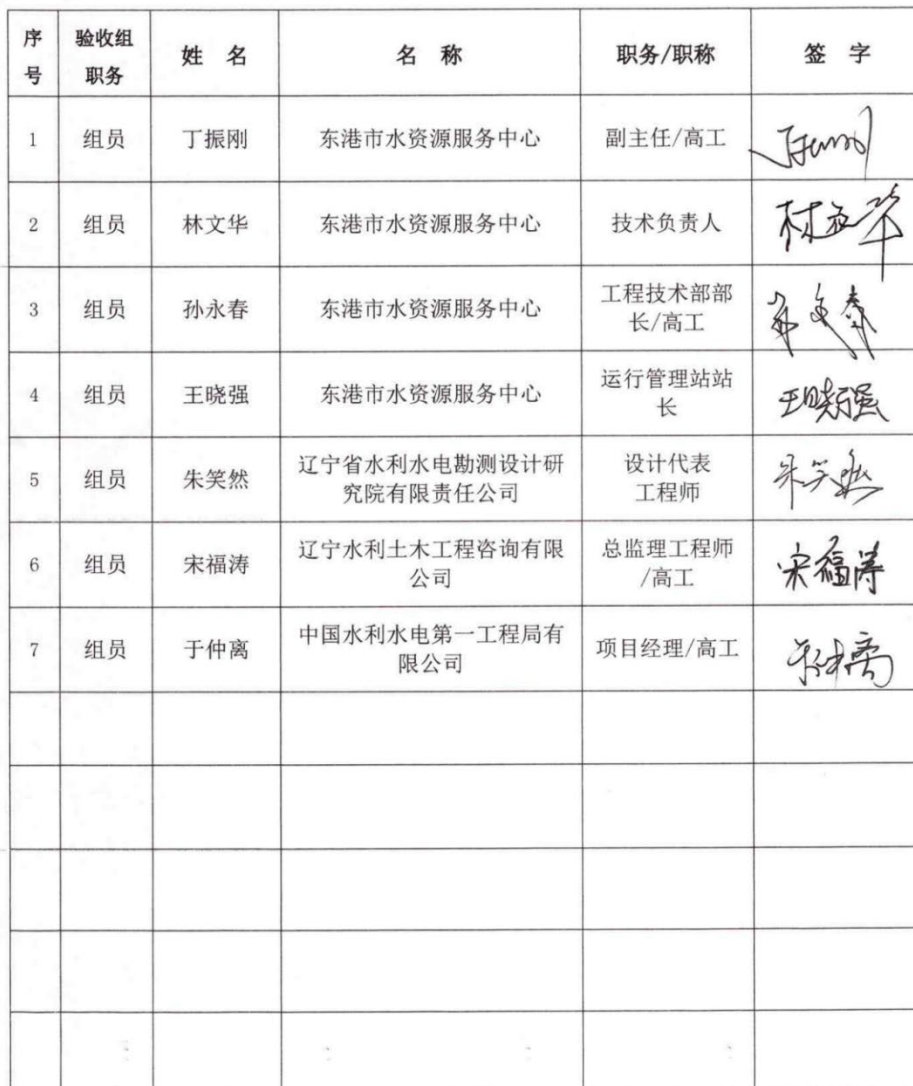 序号 验收组职务 姓 名 名 称 职务/职称 签 字
1 组员 丁振刚 东港市水资源服务中心 副主任/高工
2 组员 林文华 东港市水资源服务中心 技术负责人 林文华
3 组员 孙永春 东港市水资源服务中心 工程技术部部长/高工
4 组员 王晓强 东港市水资源服务中心 运行管理站站长 王晓强
5 组员 朱笑然 辽宁省水利水电勘测设计研究院有限责任公司 设计代表工程师 朱笑然
6 组员 宋福涛 辽宁水利土木工程咨询有限公司 总监理工程师/高工 宋福涛
7 组员 于仲离 中国水利水电第一工程局有限公司 项目经理/高工 于仲离